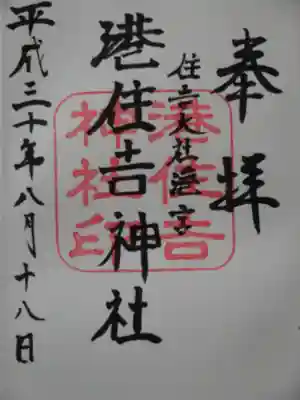 奉拝
住吉大社海宮
港住吉神社
平成三十年八月十八日
港住吉
神社印